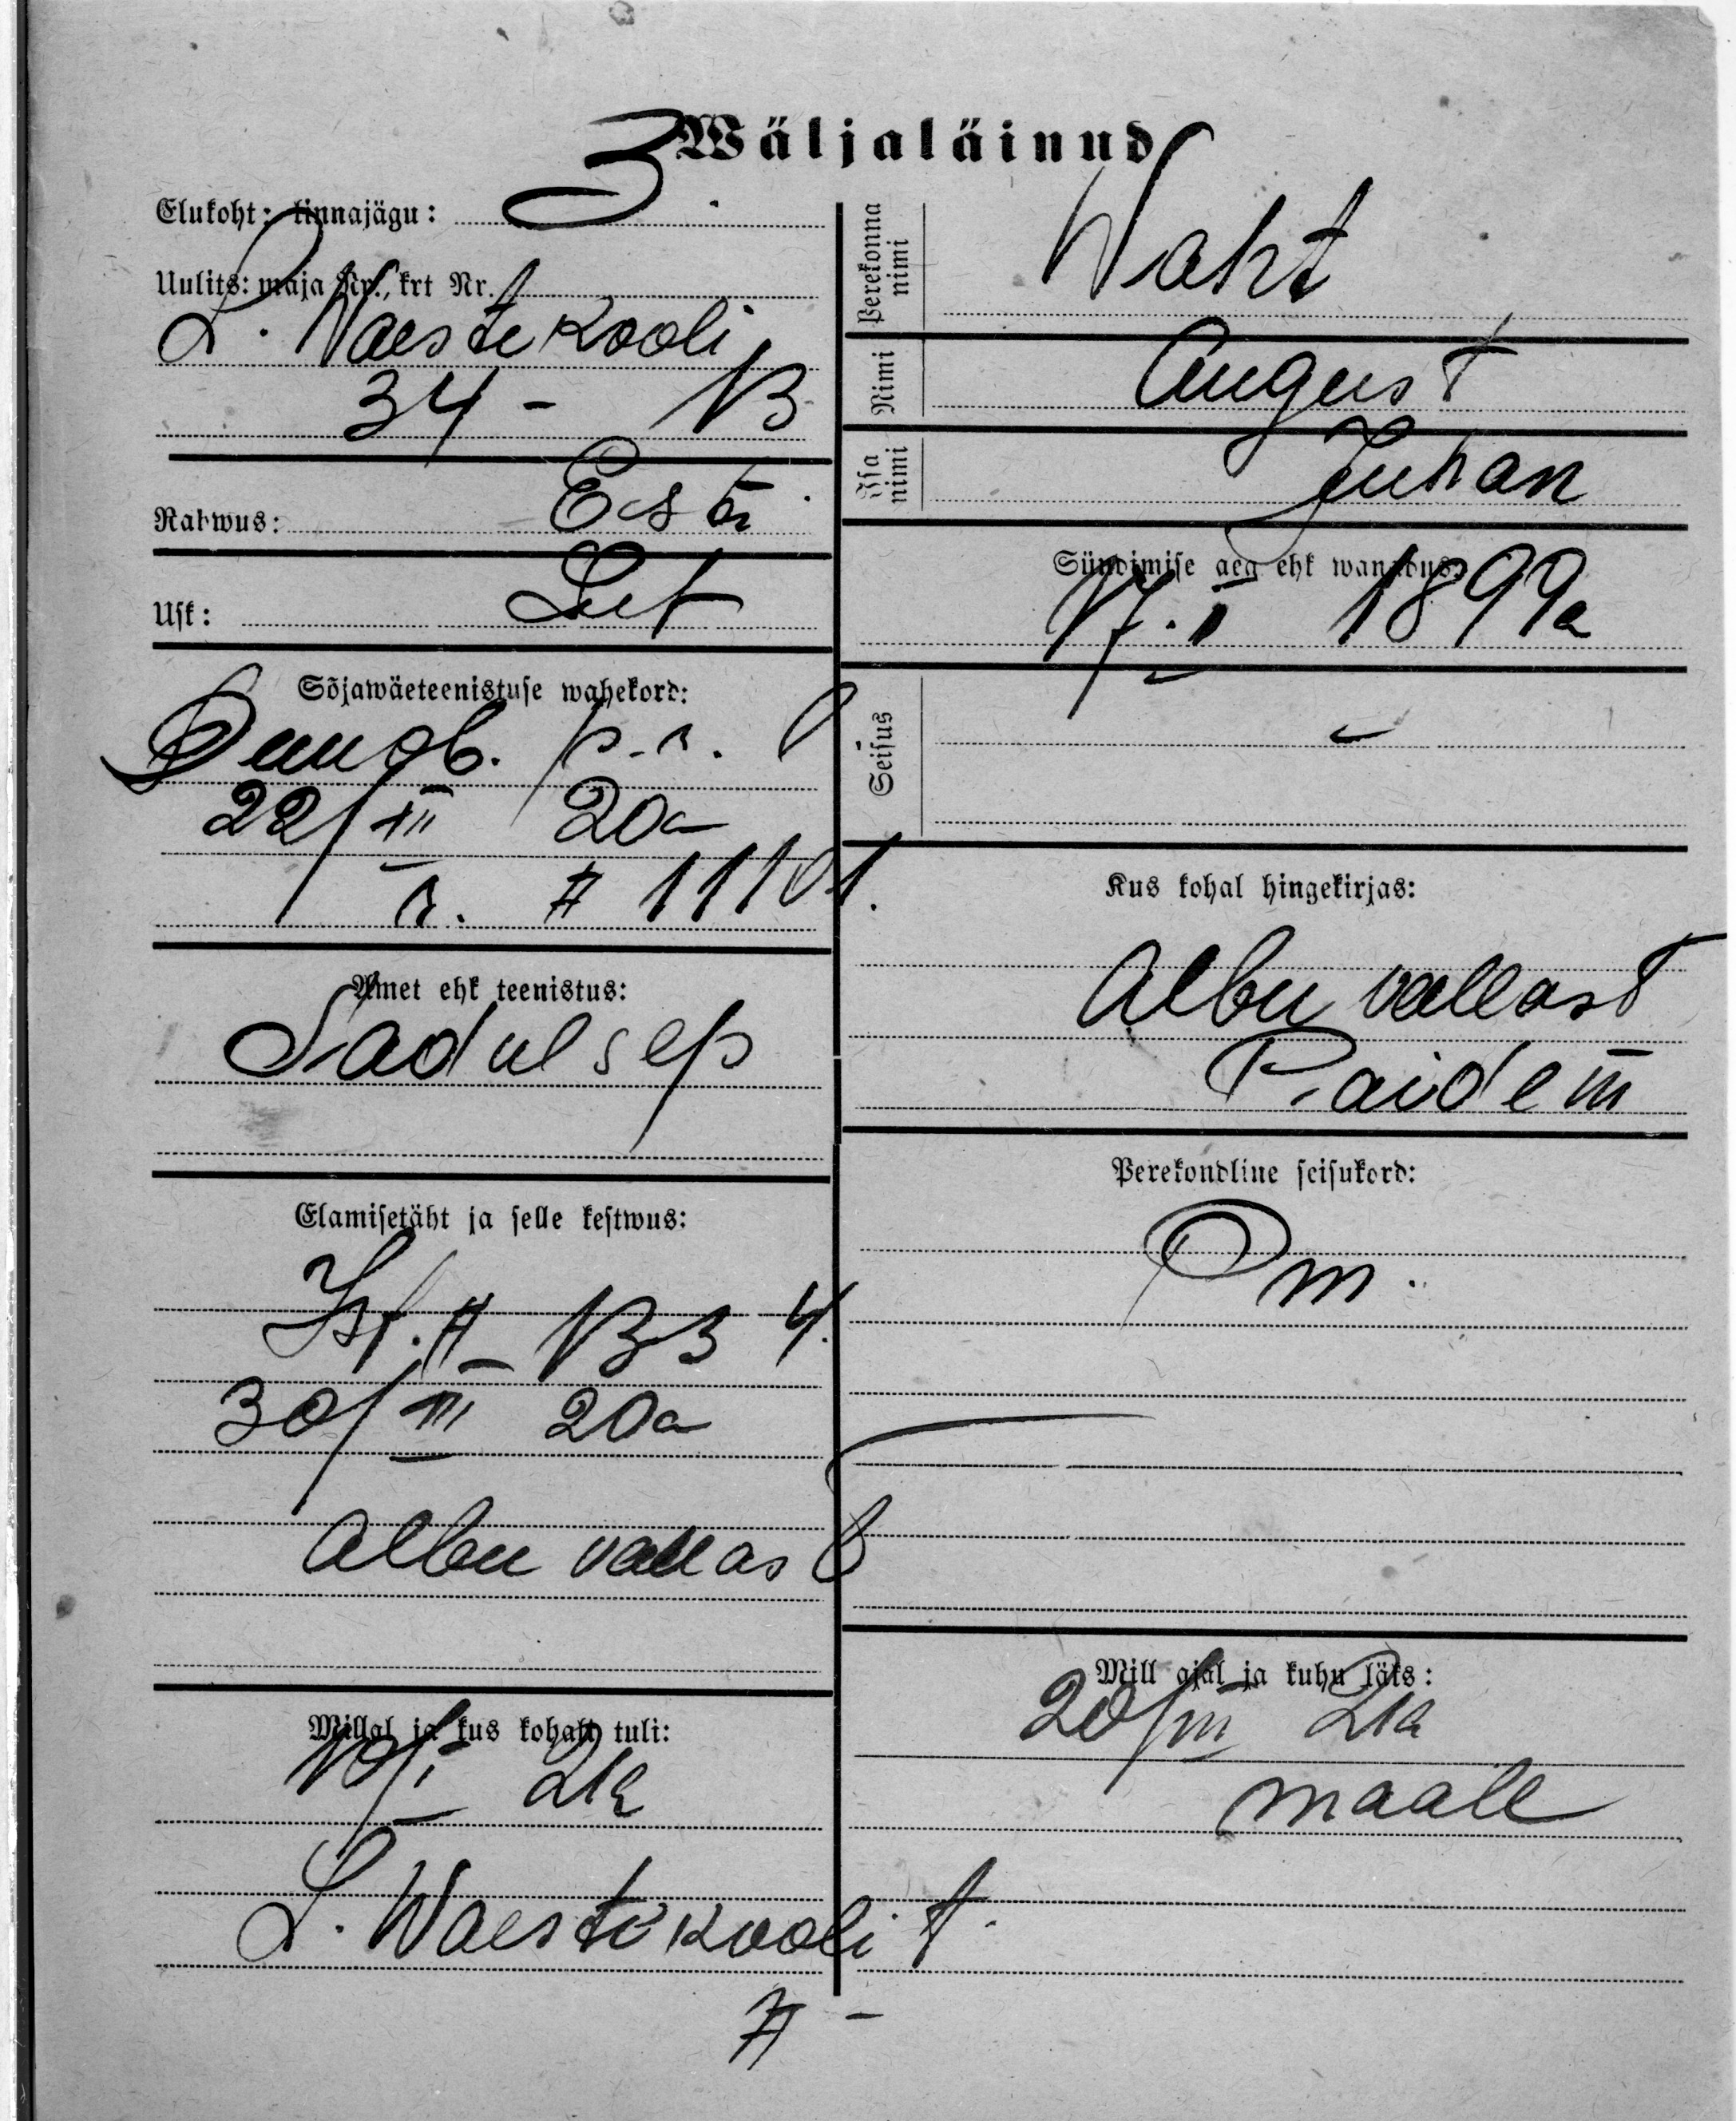 Wäljaläinud
Elukoht: linnajägu: 3.
Uulits: maja Nr., krt Nr.
L. Waestekooli
34 - 13
Rahwus: Esti
Usk: Lut
Sõjawäeteenistuse wahekord:
22/XII 20a
№ 11101.
Amet ehk teenistus:
Sadulsep
Elamisetäht ja selle kestwus:
№ 1334.
30/XII 20a
Albu vallast
Millal ja kus kohalt tuli:
10/I 21a
L. Waestekooli t.
7 -
Perekonna nimi
Waht
Nimi
August
Isa nimi
Juhan
Sündimise aeg ehk wanadus:
17. I 1899a
Seisus
-
Kus kohal hingekirjas:
Albu vallast
Paidem
Perekondline seisukord:
Pm.
Mill ajal ja kuhu läks:
20/III 21a
maale